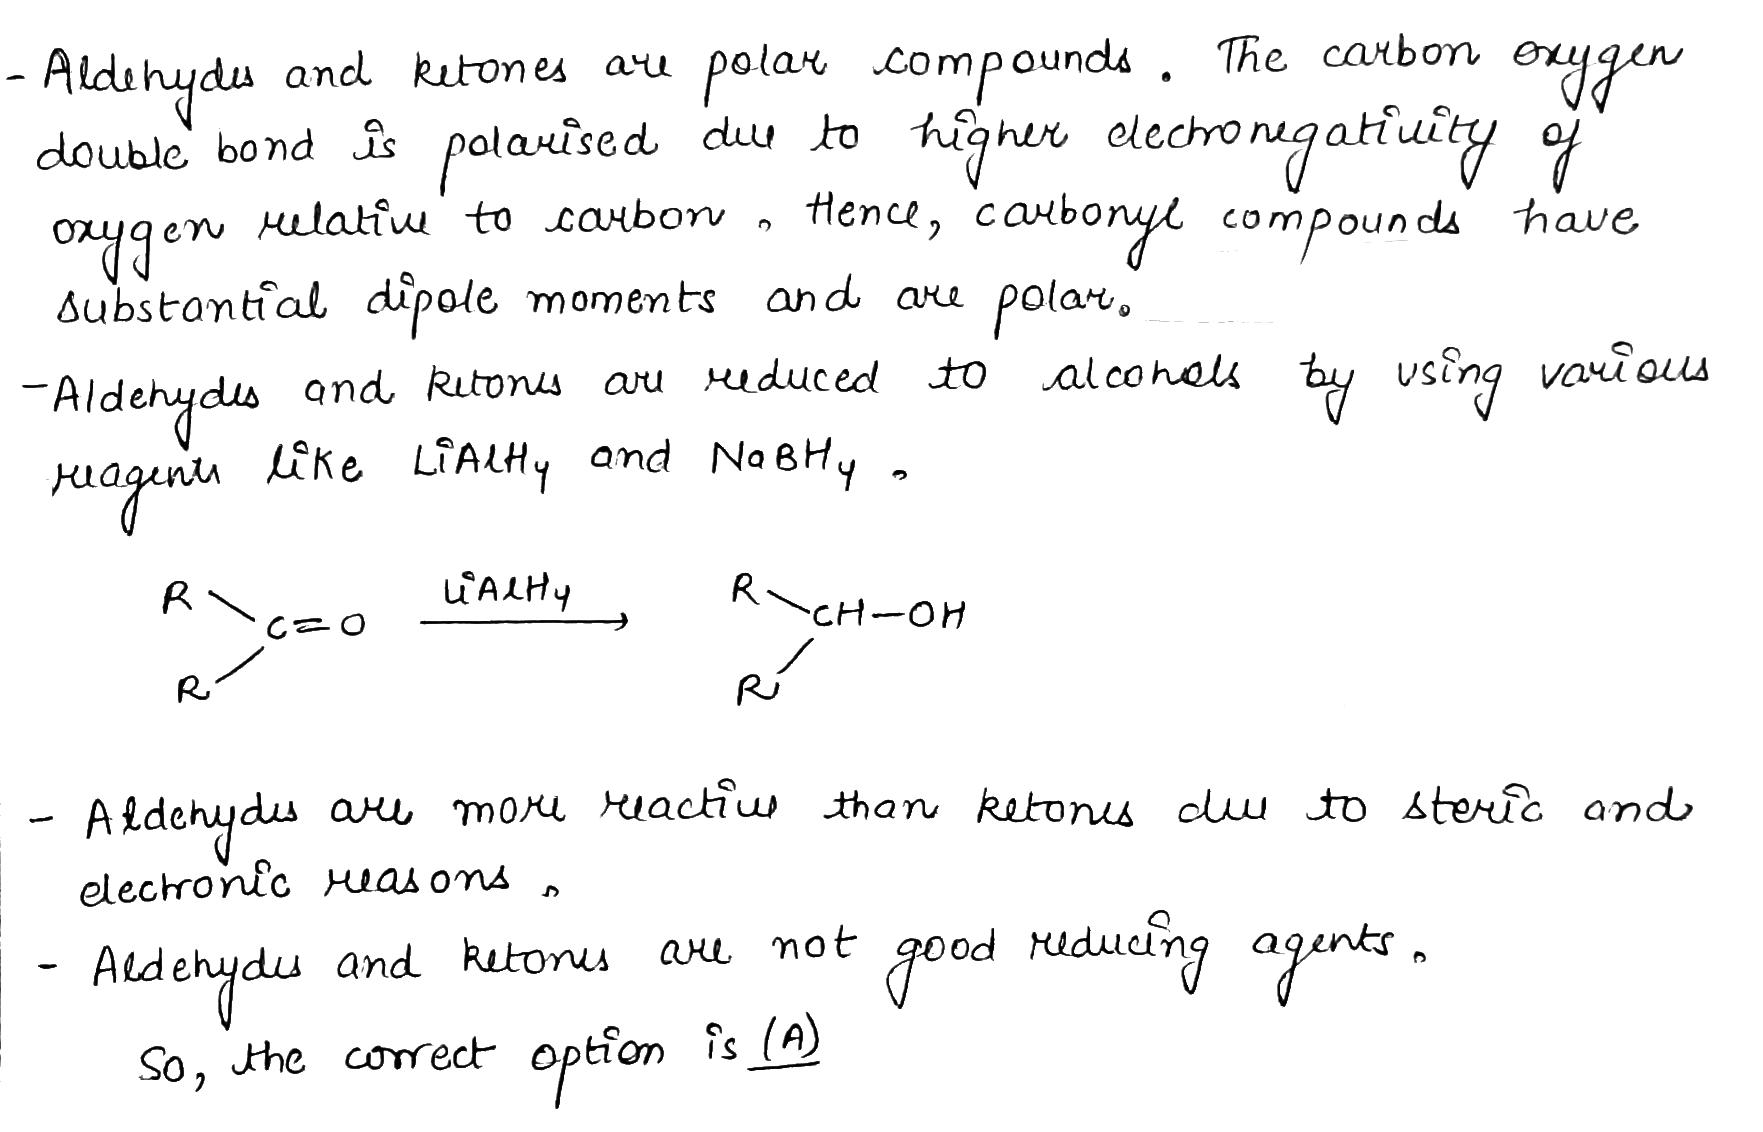 - Aldehydes and ketones are polar compounds. The carbon oxygen
double bond is polarised due to higher electronegativity of
oxygen relative to carbon. Hence, carbonyl compounds have
substantial dipole moments and are polar.
- Aldehydes and ketones are reduced to alcohols by using various
reagents like LiAlH4 and NaBH4.
R R
LiAlH4
C=O CH-OH
R R
- Aldehydes are more reactive than ketones due to steric and
electronic reasons.
- Aldehydes and ketones are not good reducing agents.
So, the correct option is (A)